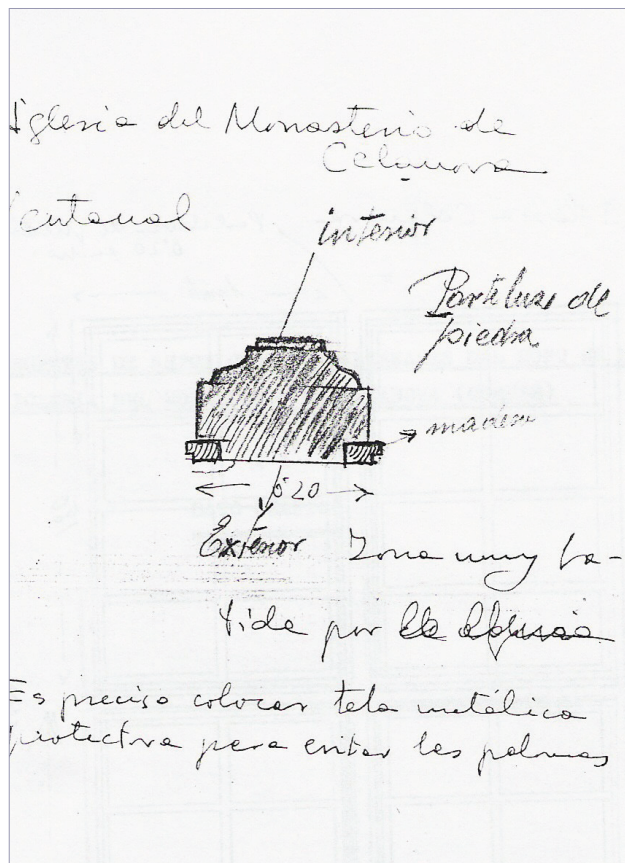 Iglesia del Monasterio de
Celanova
Ventanal
interior
Parteluz de
piedra
madera
0'20
Exterior Zona muy ba-
tida por la lluvia
Es preciso colocar tela metálica
protectora para evitar las palomas